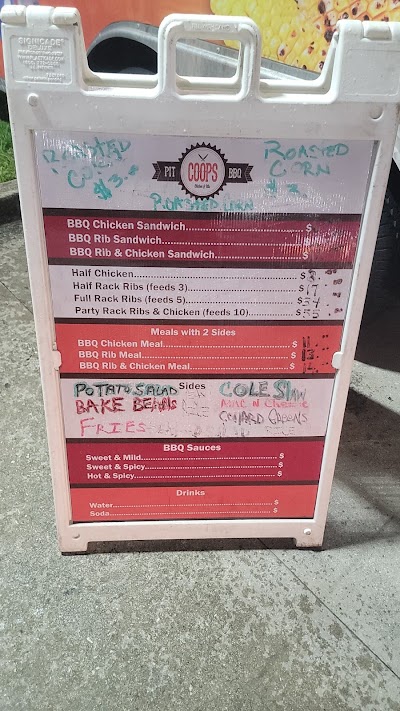 SIGNICADE
DELUXE
ROASTED CORN $3.00
PIT COOPS BBQ
ROASTED CORN $3
ROASTED CORN
BBQ Chicken Sandwich $
BBQ Rib Sandwich $
BBQ Rib & Chicken Sandwich $
Half Chicken $
Half Rack Ribs (feeds 3) $17
Full Rack Ribs (feeds 5) $34
Party Rack Ribs & Chicken (feeds 10) $55
Meals with 2 Sides
BBQ Chicken Meal $
BBQ Rib Meal $13
BBQ Rib & Chicken Meal $
Sides
POTATO SALAD COLE Slaw
BAKE BEANS MAC N CHEESE
FRIES COLLARD GREENS
BBQ Sauces
Sweet & Mild $
Sweet & Spicy $
Hot & Spicy $
Drinks
Water $
Soda $